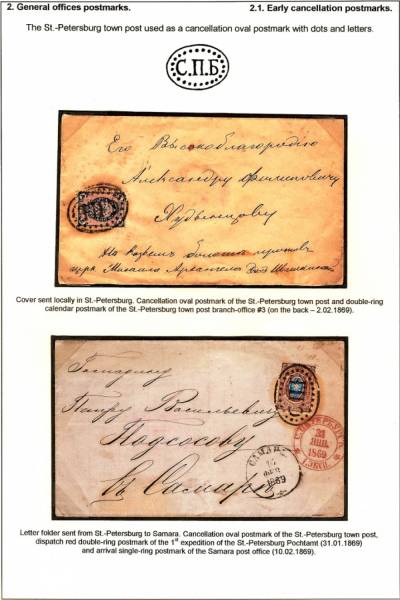 2. General offices postmarks.
2.1. Early cancellation postmarks.
The St.-Petersburg town post used as a cancellation oval postmark with dots and letters.
С.П.Б
Его Высокоблагородію
Александру Филиповичу
Михаила Архангела
Cover sent locally in St.-Petersburg. Cancellation oval postmark of the St.-Petersburg town post and double-ring
calendar postmark of the St.-Petersburg town post branch-office #3 (on the back – 2.02.1869).
Господину
Петру Васильевичу
Подсосову
въ Самару
САМАРА
1869
С.ПЕТЕРБУРГЪ
31
ЯНВ.
1869
Letter folder sent from St.-Petersburg to Samara. Cancellation oval postmark of the St.-Petersburg town post,
dispatch red double-ring postmark of the 1st expedition of the St.-Petersburg Pochtamt (31.01.1869)
and arrival single-ring postmark of the Samara post office (10.02.1869).